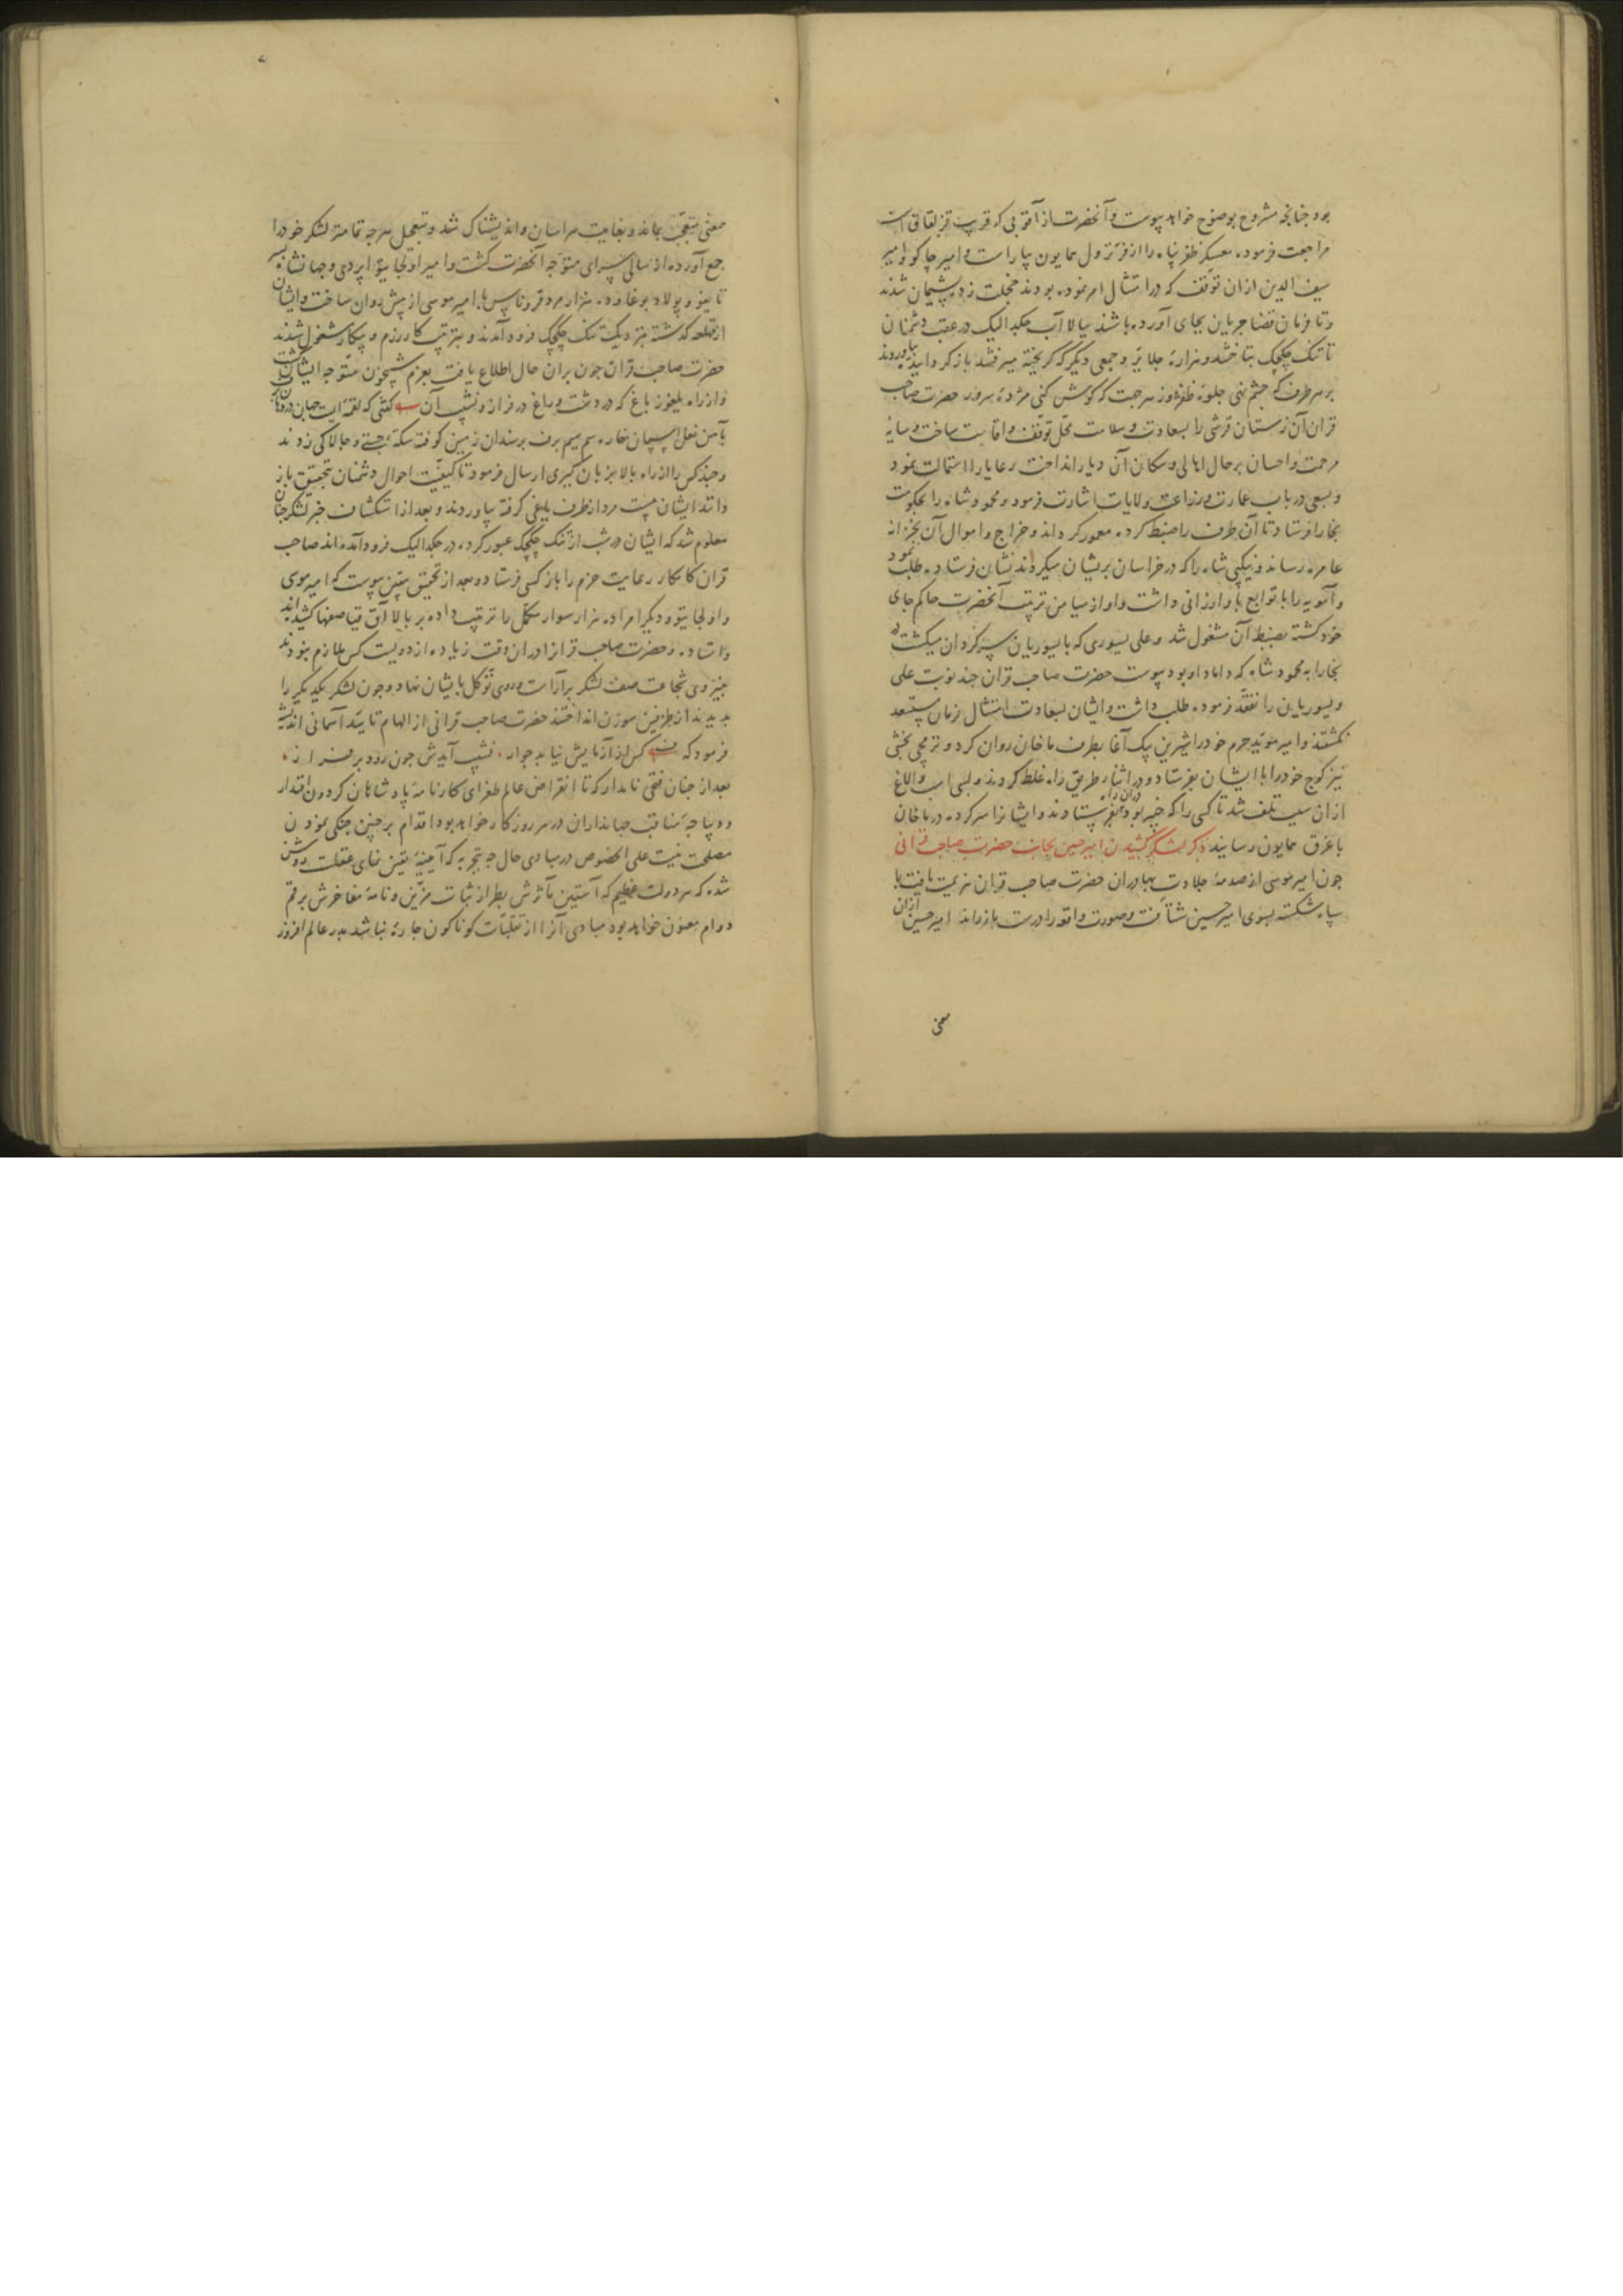 بود جنانجه مشروح بوضوح خواهد پیوست وآنحضرت از آقوبی که قریب قزلقاق است
مراجعت فرموده معسکر ظفر پناه را از فرّ نزول همایون بیاراست و امیر جاکو و امیر
سیف الدین ازان توقف که در امتثال امر نموده بودند خجلت زده پشیمان شدند
وتا فرمان قضا جریان بجای آورده باشند ببالا آب جکدالیک در عقب دشمنان
تا تنک چکچک بتاختند و هزارهٔ جلایر و جمعی دیکر که کریخته میرفتند باز کردانیده بیاوردند
بر هر طرف که جشم نهی جلوهٔ ظفر وز هر جهت که کوش کنی مژدهٔ سرور حضرت صاحب
قران آن زمستان قرشی را بسعادت و سلامت محل توقف و اقامت ساخت و سایهٔ
مرحمت و احسان بر حال اهالی و سکان آن دیار انداخت رعایا را استمالت نمود
وبسعی در باب عمارت و زراعت ولایات اشارت فرمود و محمود شاه را بحکومت
بخارا فرستاد تا آن طرف را ضبط کرده معمور کرداند و خراج و اموال آن بخزانه
عامره رساند و نیکپی شاه را که در خراسان بریشان میکردند نشان فرستاده طلب نمود
وآمویه را با توابع باو ارزانی داشت و او از میامن تربیت آنحضرت حاکم جای
خود کشته بضبط آن مشغول شد و علی یسوری که با یسوریان سرکردان میکشت در
بخارا به محمود شاه که داماد او بود پیوست حضرت صاحب قران جند نوبت علی
ویسوریان را تفقد فرموده طلب داشت و ایشان بسعادت امتثال فرمان مستسعد
نکشتند و امیر موید حرم خود را شیرین بیک آغا بطرف ماخان روان کرد و ترمجی بخشی
نیز کوج خود را با ایشان بفرستاد و در اثناء طریق راه غلط کردند و بسی اسب و الاغ
ازان سبب تلف شد تا کسی را که خبیر بود دران راه بفرستادند و ایشانرا سر کرده در ماخان
با غرق همایون رسانیدند ذکر لشکر کشیدن امیر حسین بجانب حضرت صاحب قرانی
جون امیر موسی از صدمهٔ جلادت بهادران حضرت صاحب قران هزیمت یافت با
سپاه شکسته بسوی امیر حسین شتافت و صورت واقعه را درست باز راند امیر حسین ازان
معنی
معنی متعجب بماند و بغایت هراسان و اندیشناک شد و بتعجیل هرجه تمامتر لشکر خود را
جمع آورده از سالی سرای متوجه آنحضرت کشت و امیر اولجایتو اپردی و جهانشاه پسر
تایغو و پولاد بوغا و ده هزار مرد قروناس با امیر موسی از پیش روان ساخت و ایشان
از قلعه کذشته بنزدیک تنک چکچک فرود آمدند و بترتیب کار رزم و پیکار مشغول شدند
حضرت صاحب قران جون بران حال اطلاع یافت بعزم شبیخون متوجه ایشان کشت
واز راه یلغوز باغ که در دشت و راغ در فراز و نشیب آن کفتی که لقمه ایست جهان در دهان
بآهن نعل اسبان خاره سم سیم برف بر سندان زمین کوفته سکهٔ جستی و جالاکی زدند
وجند کس را از راه بالا بزبان کیری ارسال فرمود تا کیفیت احوال دشمنان بتحقیق باز
دانند ایشان بیست مرد از طرف یاغی کرفته بیاوردند و بعد از استکشاف خبر لشکر جنان
معلوم شد که ایشان در شب از تنک چکچک عبور کرده در جکدالیک فرود آمده اند صاحب
قران کامکار رعایت حزم را باز کسی فرستاد و بعد از تحقیق بیقین پیوست که امیر موسی
واولجایتو و دیکر امرا ده هزار سوار مکمل را ترتیب داده بر بالا آق قیا صفها کشیده اند
واستاده و حضرت صاحب قرانرا دران وقت زیاده از دویست کس ملازم نبودند
بنیروی شجاعت صف لشکر بر آراست و روی توکل بایشان نهاد و جون لشکر یکدیکر را
بدیدند از طرفین سورن انداختند حضرت صاحب قرانی از الهام تایید آسمانی اندیشه
فرمود که کس از آزمایش نیابد جواز نشیب آیدش جون رود بر فراز
بعد از جنان فتحی نامدار که تا انقراض عالم طغرای کارنامهٔ پادشاهان کردون اقتدار
و دیباجهٔ مناقب جهانداران در هر روزکار خواهد بود اقدام بر جنین جنکی نمودن
مصلحت نیست علی الخصوص در مبادی حال جه تجربه که آیینهٔ یقین نمای عقلست روشن
شده که هر دولت عظیم که آستین مآثرش بطراز ثبات مزین و نامهٔ مفاخرش برقم
دوام معنون خواهد بود مبادی آنرا از تقلبات کوناکون جاره نباشد بدر عالم افروز